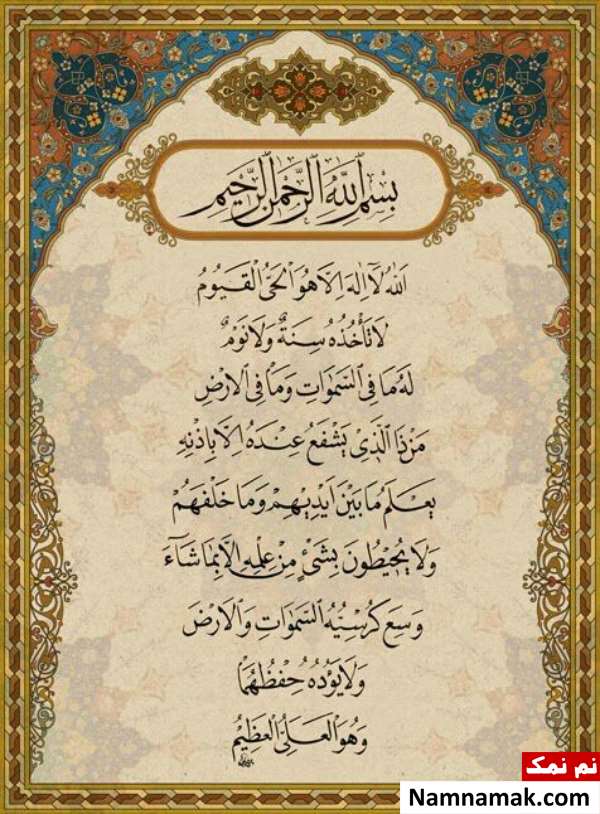 بِسْمِ ٱللَّهِ ٱلرَّحْمٰنِ ٱلرَّحِيمِ
اَللّٰهُ لَآ اِلٰهَ اِلَّا هُوَ ٱلْحَىُّ ٱلْقَيُّومُ
لَا تَأْخُذُهُ سِنَةٌ وَلَا نَوْمٌ
لَهُ مَا فِى ٱلسَّمٰوَاتِ وَمَا فِى ٱلْاَرْضِ
مَنْ ذَا ٱلَّذِى يَشْفَعُ عِنْدَهُ اِلَّا بِاِذْنِهِ
يَعْلَمُ مَا بَيْنَ اَيْدِيهِمْ وَمَا خَلْفَهُمْ
وَلَا يُحِيطُونَ بِشَىْءٍ مِنْ عِلْمِهِ اِلَّا بِمَا شَآءَ
وَسِعَ كُرْسِيُّهُ ٱلسَّمٰوَاتِ وَٱلْاَرْضَ
وَلَا يَؤُدُهُ حِفْظُهُمَا
وَهُوَ ٱلْعَلِىُّ ٱلْعَظِيمُ
نم نمک
Namnamak.com